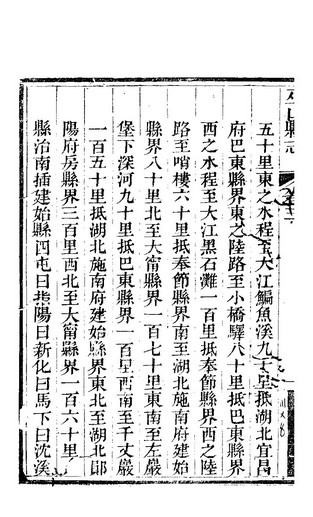 巫山縣志
五十里東之水程至大江鯿魚溪九十里抵湖北宜昌
府巴東縣界東之陸路至小橋驛八十里抵巴東縣界
西之水程至大江黑石灘一百里抵奉節縣界西之陸
路至哨樓六十里抵奉節縣界南至湖北施南府建始
縣界八十里北至大甯縣界一百七十里東南至左嚴
堡下深河九十里抵巴東縣界一百里西南至千丈巖
一百五十里抵湖北施南府建始縣界東北至湖北鄖
陽府房縣界三百里西北至大甯縣界一百六十里
縣治南插建始縣四屯曰 陽曰新化曰馬下曰沈溪